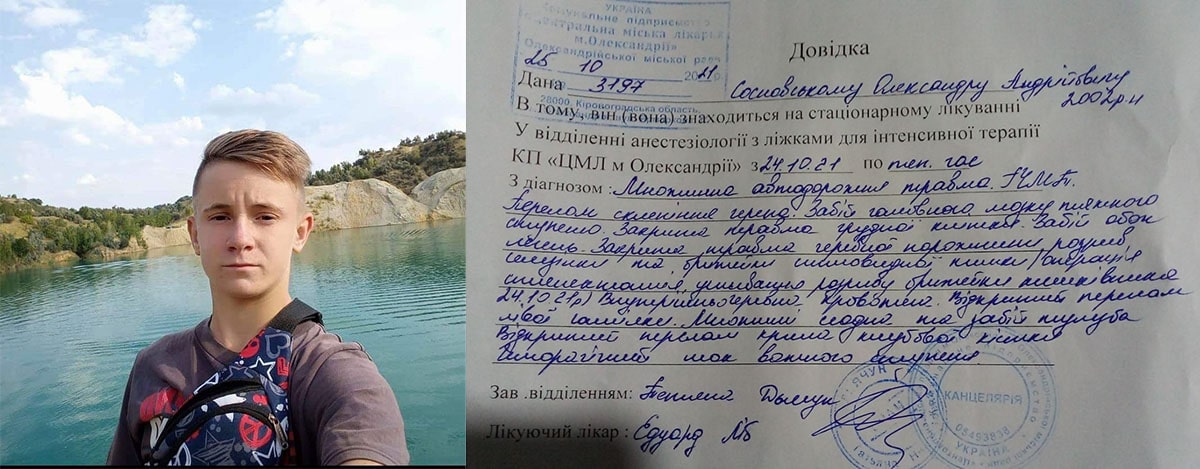 УКРАЇНА
Комунальне підприємство
«Центральна міська лікарня
м.Олександрії»
Олександрійської міської ради
25 10 2021
3197
28000, Кіровоградська область,
Довідка
Дана Сосновському Олександру Андрійовичу
2002р.н
В тому, він (вона) знаходиться на стаціонарному лікуванні
У відділенні анестезіології з ліжками для інтенсивної терапії
КП «ЦМЛ м Олександрії» з 24.10.21 по теп. час
З діагнозом : Множинна автодорожня травма. ЗЧМТ.
Перелом склепіння черепа. Забій головного мозку тяжкого
ступеню. Закрита травма грудної клітки. Забій обох
легень. Закрита травма черевної порожнини розрив
селезінки та брижейки сигмовидної кишки/операція
спленектомія, ушивання розриву брижейки кишківника
24.10.21р) Внутрішньочеревна кровотеча. Відкритий перелом
лівої гомілки. Множинні садна та забій тулуба
Відкритий перелом крила клубової кістки
Геморагічний шок важкого ступеня
Зав .відділенням:
Лікуючий лікар : Едуард
КАНЦЕЛЯРІЯ
05493838
УКРАЇНА